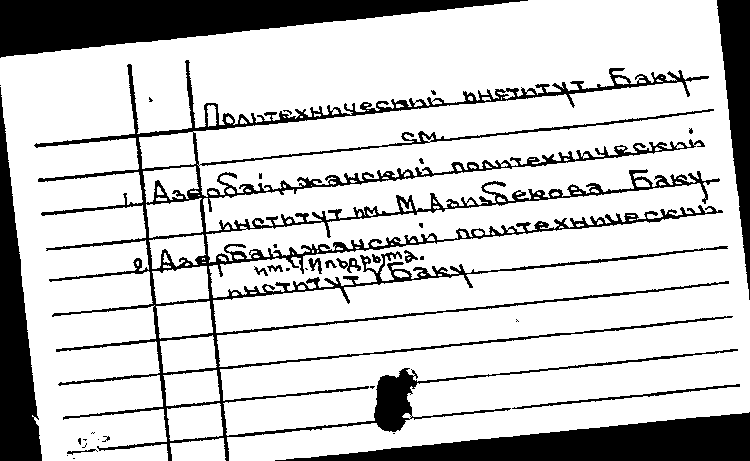 Политехнический институт. Баку
см.
1. Азербайджанский политехнический
институт им. М. Азизбекова. Баку
2. Азербайджанский политехнический
им. Ч. Ильдрыма.
институт √ Баку.